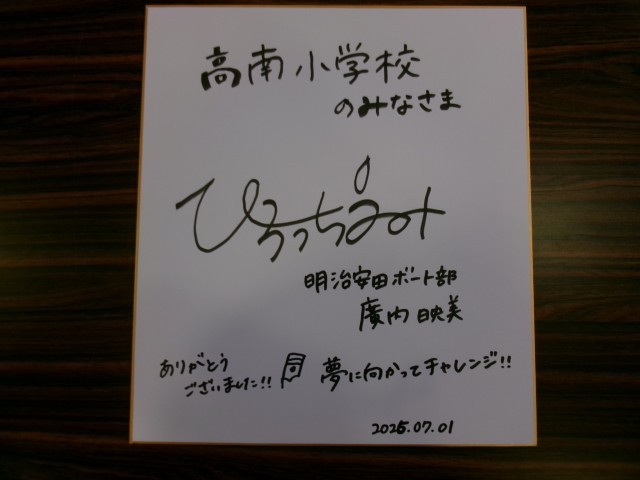 高南小学校
のみなさま
ひろうちえみ
明治安田ボート部
廣内映美
ありがとう
ございました!!
夢に向かってチャレンジ!!
2025.07.01